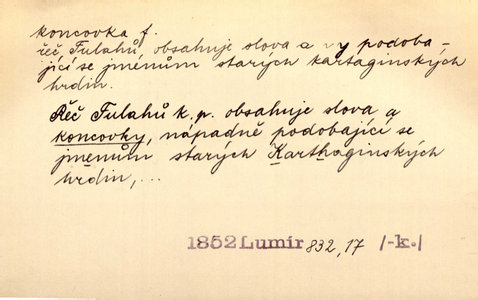 koncovka f.
řeč Fulahů, obsahuje slova a podoba-
jící se jménům starých kartaginských
hrdin.
Řeč Fulahů k. p. obsahuje slova a
koncovky, nápadně podobající se
jmenům starých Karthaginských
hrdin,...
1852 Lumír 832,17 /-k./